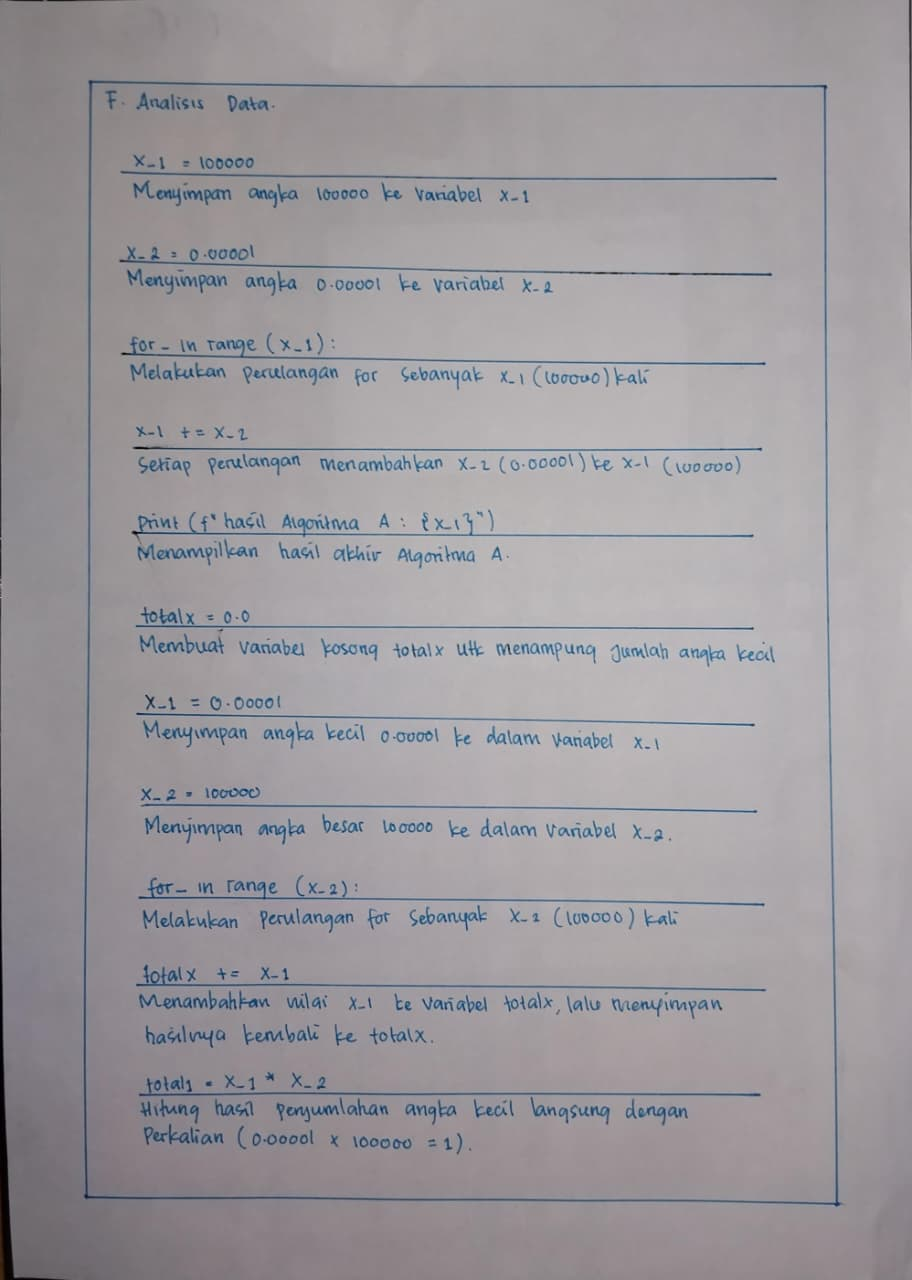 F. Analisis Data.
x_1 = 100000
Menyimpan angka 100000 ke variabel x_1
x_2 = 0.00001
Menyimpan angka 0.00001 ke variabel x_2
for _ in range (x_1) :
Melakukan perulangan for sebanyak x_1 (100000) kali
x_1 += x_2
Setiap perulangan menambahkan x_2 (0.00001) ke x_1 (100000)
print (f" hasil Algoritma A : {x_1}")
Menampilkan hasil akhir Algoritma A.
totalx = 0.0
Membuat variabel kosong totalx utk menampung jumlah angka kecil
x_1 = 0.00001
Menyimpan angka kecil 0.00001 ke dalam variabel x_1
x_2 = 100000
Menyimpan angka besar 100000 ke dalam variabel x_2.
for _ in range (x_2) :
Melakukan perulangan for sebanyak x_2 (100000) kali
totalx += x_1
Menambahkan nilai x_1 ke variabel totalx, lalu menyimpan
hasilnya kembali ke totalx.
total1 = x_1 * x_2
Hitung hasil penjumlahan angka kecil langsung dengan
Perkalian (0.00001 x 100000 = 1).